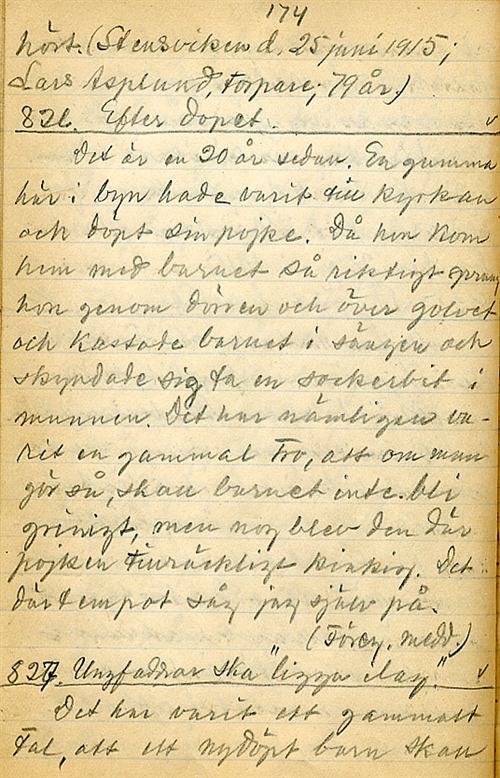 174
hört. (Stensviken d. 25 juni 1915;
Lars Asplund, torpare; 79 år.)
826. Efter dopet.
Det är en 20 år sedan. En gumma
här i byn hade varit till kyrkan
och döpt sin pojke. Då hon kom
hem med barnet så riktigt sprang
hon genom dörren och över golvet
och kastade barnet i sängen och
skyndade sig ta en sockerbit i
munnen. Det har nämligen va-
rit en gammal tro, att om man
gör så, skall barnet inte bli
grinigt, men nog blev den där
pojken tillräckligt kinkig. Det
där tempot såg jag själv på.
(Föreg. medd.)
827. Ungfaddrar ska "ligga
Det har varit ett gammalt
tal, att ett nydöpt barn skall